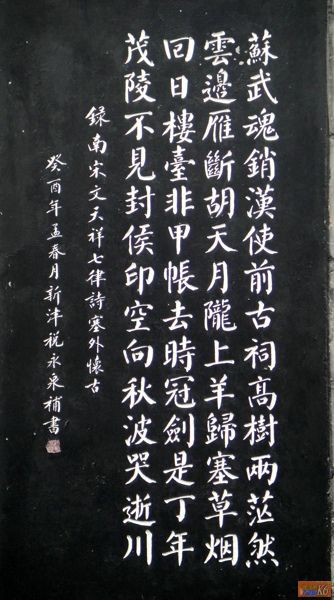 蘇武魂銷漢使前古祠高樹兩茫然
雲邊雁斷胡天月隴上羊歸塞草烟
回日樓臺非甲帳去時冠劍是丁年
茂陵不見封侯印空向秋波哭逝川
録南宋文天祥七律詩塞外懷古
癸酉年孟春月新津税永泉補書